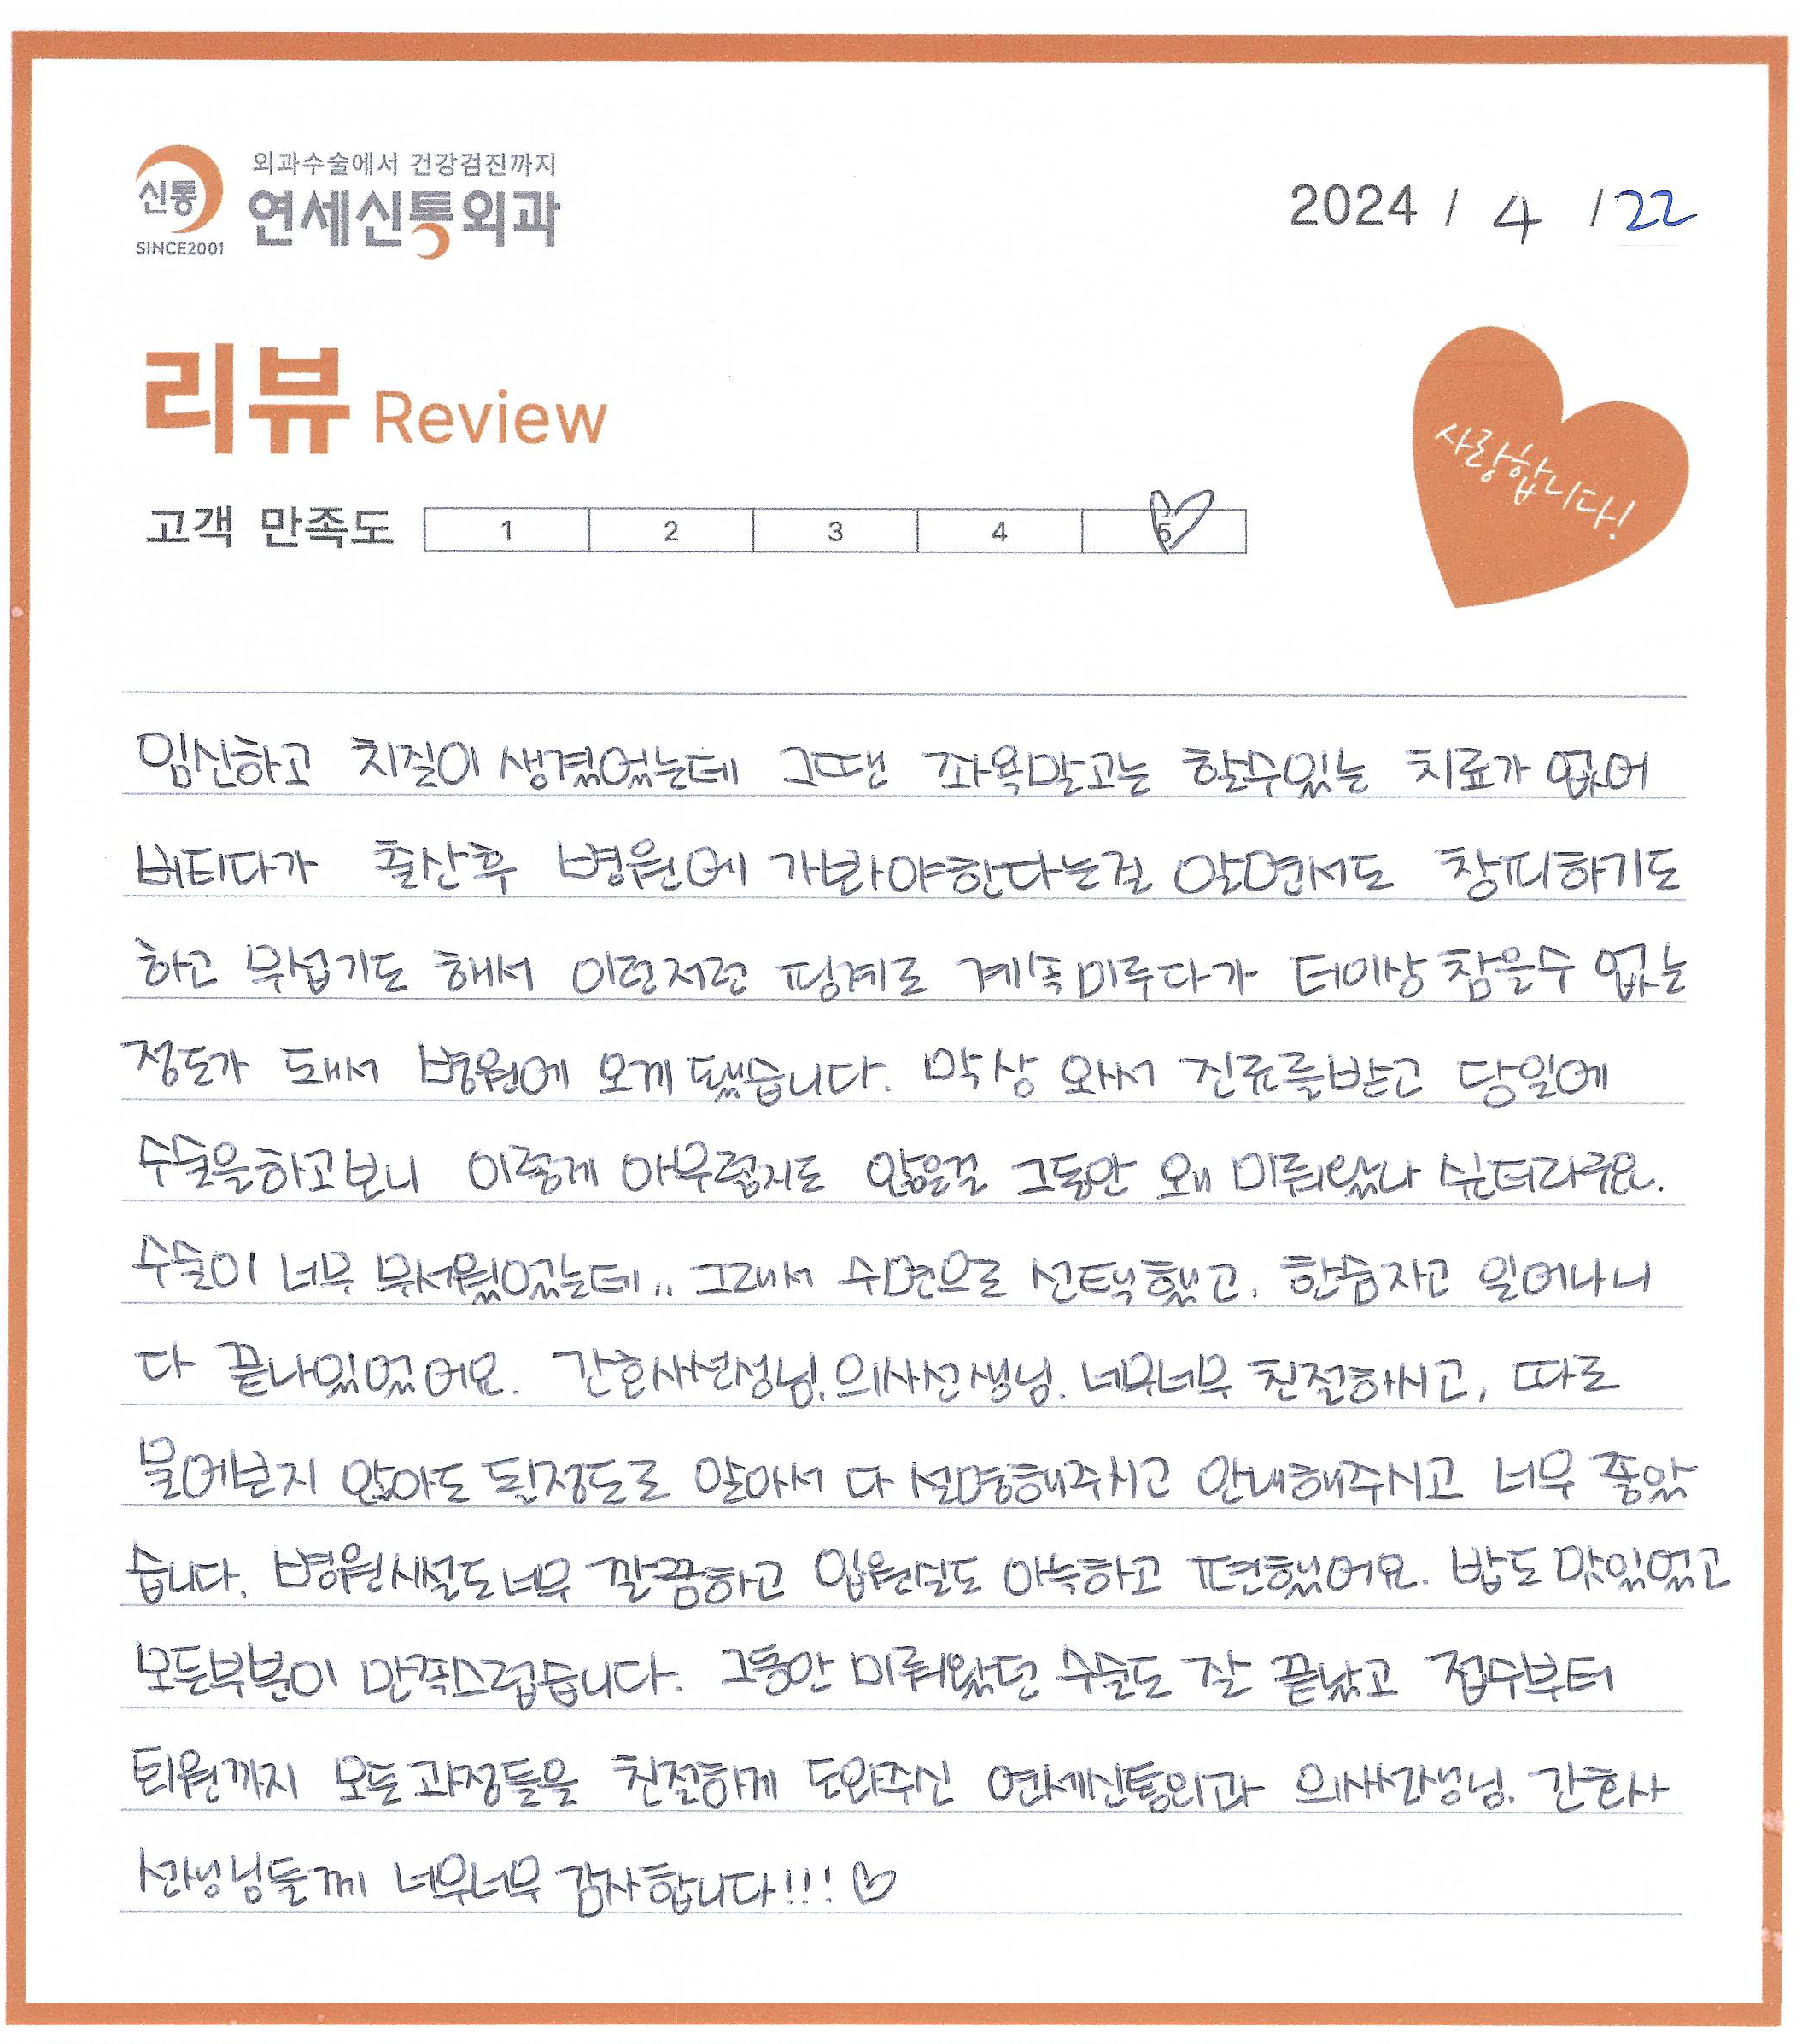 신통
SINCE2001
외과수술에서 건강검진까지
연세신통외과
2024 / 4 / 22
리뷰 Review
사랑합니다!
고객 만족도 1 2 3 4 5
임신하고 치질이 생겼었는데 그땐 좌욕말고는 할수있는 치료가 없어
버티다가 출산후 병원에 가봐야한다는걸 알면서도 창피하기도
하고 무섭기도 해서 이런저런 핑계로 계속 미루다가 더이상 참을수 없는
정도가 돼서 병원에 오게 됐습니다. 막상 와서 진료를받고 당일에
수술을하고보니 이렇게 아무렇지도 않은걸 그동안 왜 미뤄왔나 싶더라구요.
수술이 너무 무서웠었는데.. 그래서 수면으로 선택했고, 한숨자고 일어나니
다 끝나있었어요. 간호사선생님, 의사선생님. 너무너무 친절하시고, 따로
물어보지 않아도 될정도로 알아서 다 설명해주시고 안내해주시고 너무 좋았
습니다. 병원시설도너무 깔끔하고 입원실도 아늑하고 편했어요. 밥도 맛있었고
모든부분이 만족스럽습니다. 그동안 미뤄왔던 수술도 잘 끝났고 접수부터
퇴원까지 모든과정들을 친절하게 도와주신 연세신통외과 의사선생님. 간호사
선생님들께 너무너무 감사합니다!!! ♡